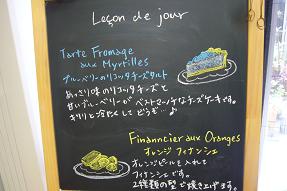 Leçon de jour
Tarte Fromage
aux Myrtilles
ブルーベリーのリコッタチーズタルト
あっさり味のリコッタチーズと
甘いブルーベリーが ベストマッチなチーズケーキです。
キリリと冷たくして どうぞ…♪
Finanncier aux Oranges
オレンジ フィナンシェ
オレンジピールを入れて
フィナンシェです。
2種類の型で焼き上げます。